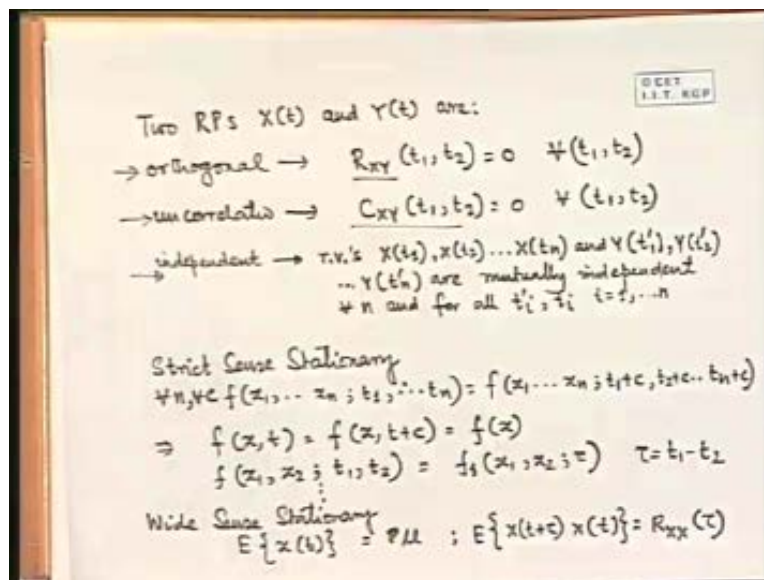 © CET
I.I.T. KGP
Two RPs X(t) and Y(t) are:
→ orthogonal → R_XY (t₁, t₂) = 0 ∀ (t₁, t₂)
→ uncorrelatio → C_XY (t₁, t₂) = 0 ∀ (t₁, t₂)
→ independent → r.v.'s X(t₁), X(t₂) ... X(tn) and Y(t'₁), Y(t'₂)
... Y(t'n) are mutually independent
∀ n and for all t'i, ti i = 1, ... n
Strict Sense Stationary
∀n, ∀c f(x₁, ... xn ; t₁, ... tn) = f(x₁ ... xn ; t₁+c, t₂+c .. tn+c)
⇒ f(x, t) = f(x, t+c) = f(x)
f(x₁, x₂ ; t₁, t₂) = f(x₁, x₂ ; τ) τ = t₁ - t₂
Wide Sense Stationary
E{x(t)} = μ ; E{x(t+τ) x(t)} = R_xx(τ)